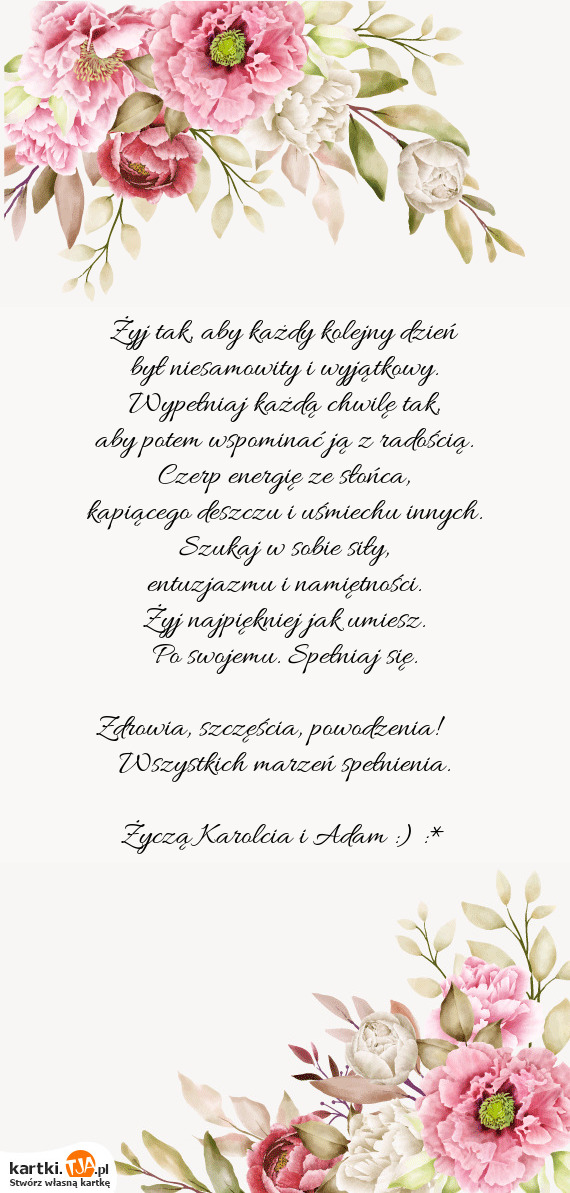 Żyj tak, aby każdy kolejny dzień
był niesamowity i wyjątkowy.
Wypełniaj każdą chwilę tak,
aby potem wspominać ją z radością.
Czerp energię ze słońca,
kapiącego deszczu i uśmiechu innych.
Szukaj w sobie siły,
entuzjazmu i namiętności.
Żyj najpiękniej jak umiesz.
Po swojemu. Spełniaj się.
Zdrowia, szczęścia, powodzenia!
Wszystkich marzeń spełnienia.
Życzą Karolcia i Adam :) :*
kartki.TJA.pl
Stwórz własną kartkę